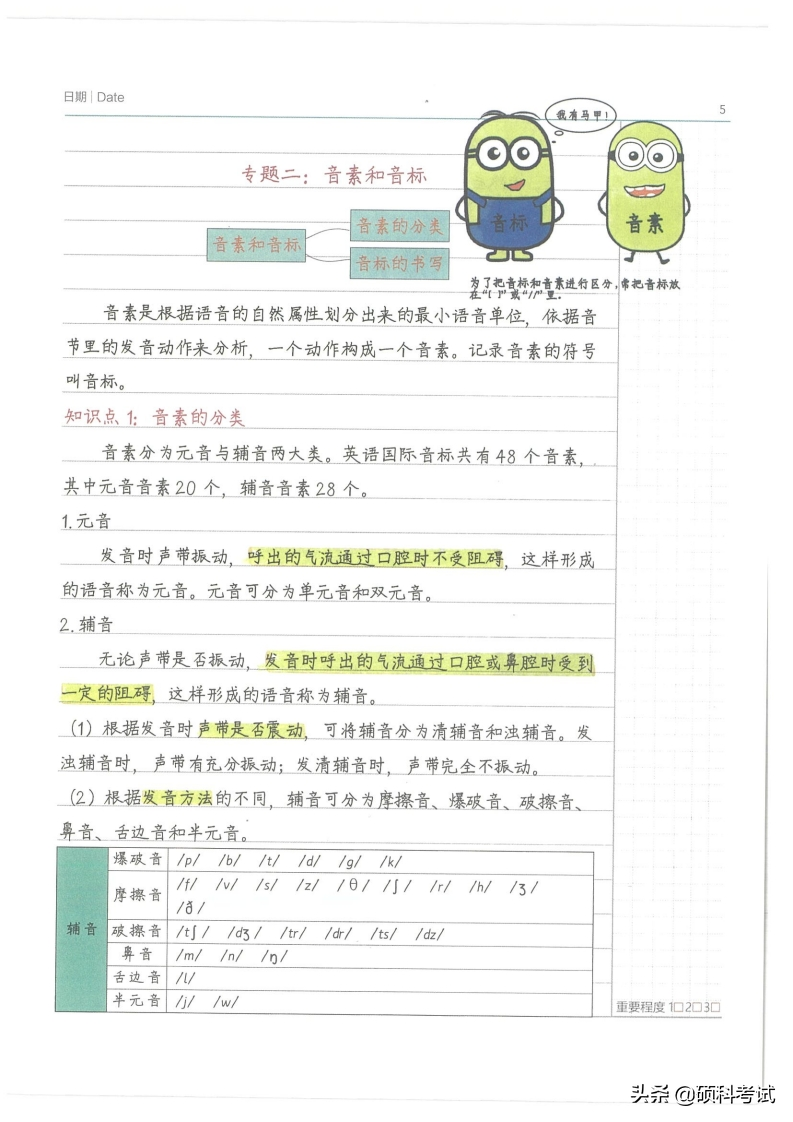 日期 | Date
5
我有马甲！
专题二：音素和音标
音标
音素
音素和音标
音素的分类
音标的书写
为了把音标和音素进行区分，常把音标放
在“[ ]”或“//”里.
音素是根据语音的自然属性划分出来的最小语音单位，依据音
节里的发音动作来分析，一个动作构成一个音素。记录音素的符号
叫音标。
知识点1：音素的分类
音素分为元音与辅音两大类。英语国际音标共有48个音素，
其中元音音素20个，辅音音素28个。
1.元音
发音时声带振动，呼出的气流通过口腔时不受阻碍，这样形成
的语音称为元音。元音可分为单元音和双元音。
2.辅音
无论声带是否振动，发音时呼出的气流通过口腔或鼻腔时受到
一定的阻碍，这样形成的语音称为辅音。
（1）根据发音时声带是否震动，可将辅音分为清辅音和浊辅音。发
浊辅音时，声带有充分振动；发清辅音时，声带完全不振动。
（2）根据发音方法的不同，辅音可分为摩擦音、爆破音、破擦音、
鼻音、舌边音和半元音。
辅音
爆破音 /p/ /b/ /t/ /d/ /g/ /k/
摩擦音 /f/ /v/ /s/ /z/ /θ/ /ʃ/ /r/ /h/ /ʒ/
/ð/
破擦音 /tʃ/ /dʒ/ /tr/ /dr/ /ts/ /dz/
鼻音 /m/ /n/ /ŋ/
舌边音 /l/
半元音 /j/ /w/
重要程度 1□2□3□
头条 @硕科考试